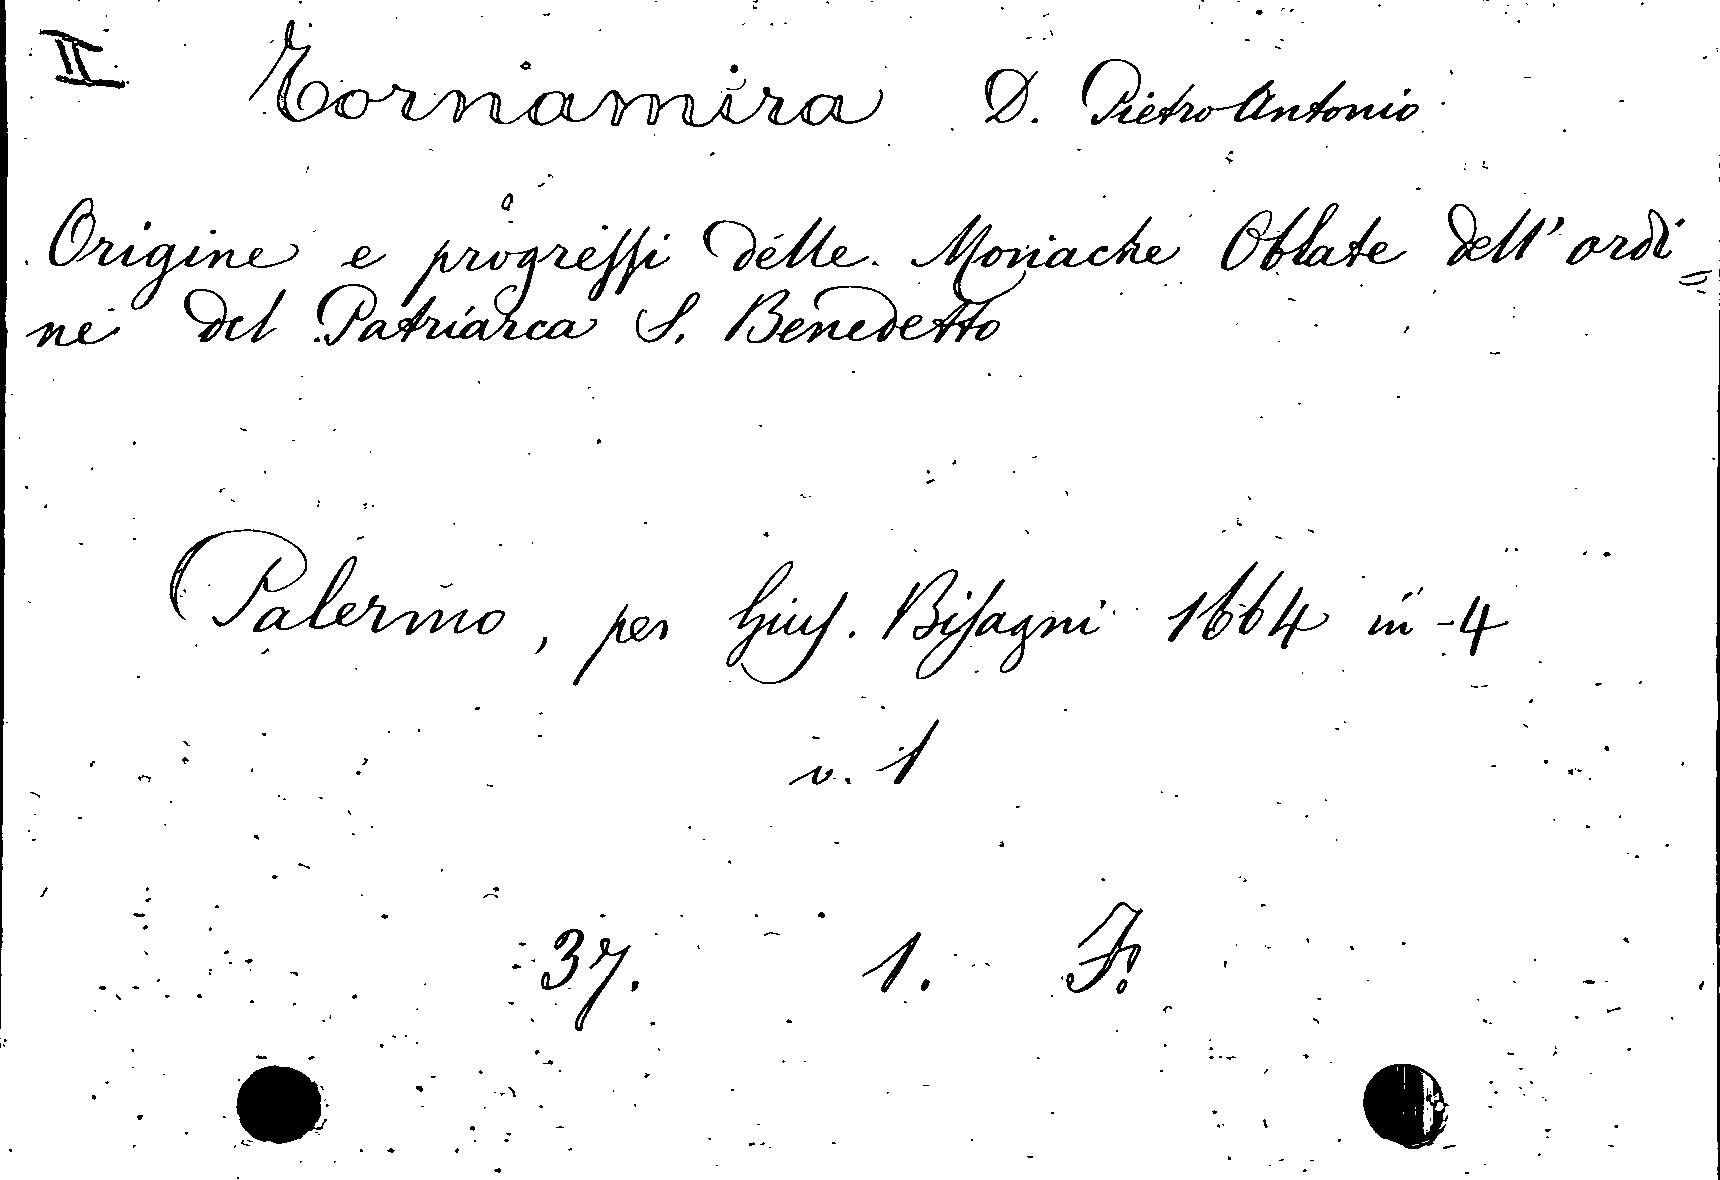 II Tornamira D. Pietro Antonio
Origine e progressi delle Monache Oblate dell' ordi=
ne del Patriarca S. Benedetto
Palermo, per Gius. Bisagni 1664 in-4
v. 1
37. 1. F.